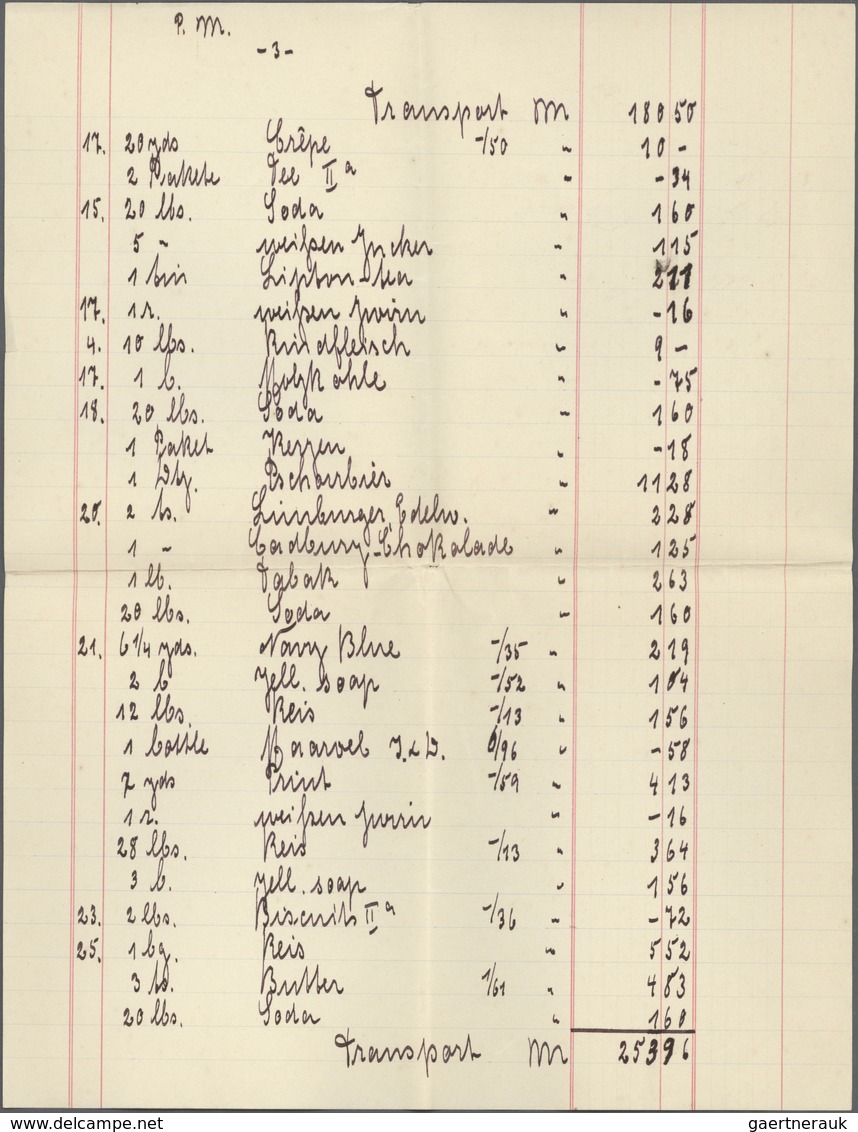 P. M.
-3-
Transport M 180 50
17. 20 yds Crêpe -/50 " 10 -
2 Pakete Tee IIª " - 34
15. 20 lbs. Soda " 1 60
5 " weißen Zucker " 1 15
1 tin Lipton-tea " 2 11
17. 1 r. weißen Zwirn " - 16
4. 10 lbs. Rindfleisch " 9 -
17. 1 b. Holzkohle " - 75
18. 20 lbs. Soda " 1 60
1 Paket Kerzen " - 18
1 Dtz. Pschorrbier " 11 28
20. 2 ts. Limburger, Edelw. " 2 28
1 " Cadbury-Chokolade " 1 25
1 lb. Tabak " 2 63
20 lbs. Soda " 1 60
21. 6 1/4 yds. Navy Blue -/35 " 2 19
2 b yell. soap -/52 " 1 04
12 lbs. Reis -/13 " 1 56
1 bottle /96 " - 58
7 yds Print -/59 " 4 13
1 r. weißen Zwirn " - 16
28 lbs. Reis -/13 " 3 64
3 b. yell. soap " 1 56
23. 2 lbs. Biscuits IIª -/36 " - 72
25. 1 bg. Reis " 5 52
3 ts. Butter 1/61 " 4 83
20 lbs. Soda " 1 60
Transport M 253 96
www.delcampe.net
gaertnerauk